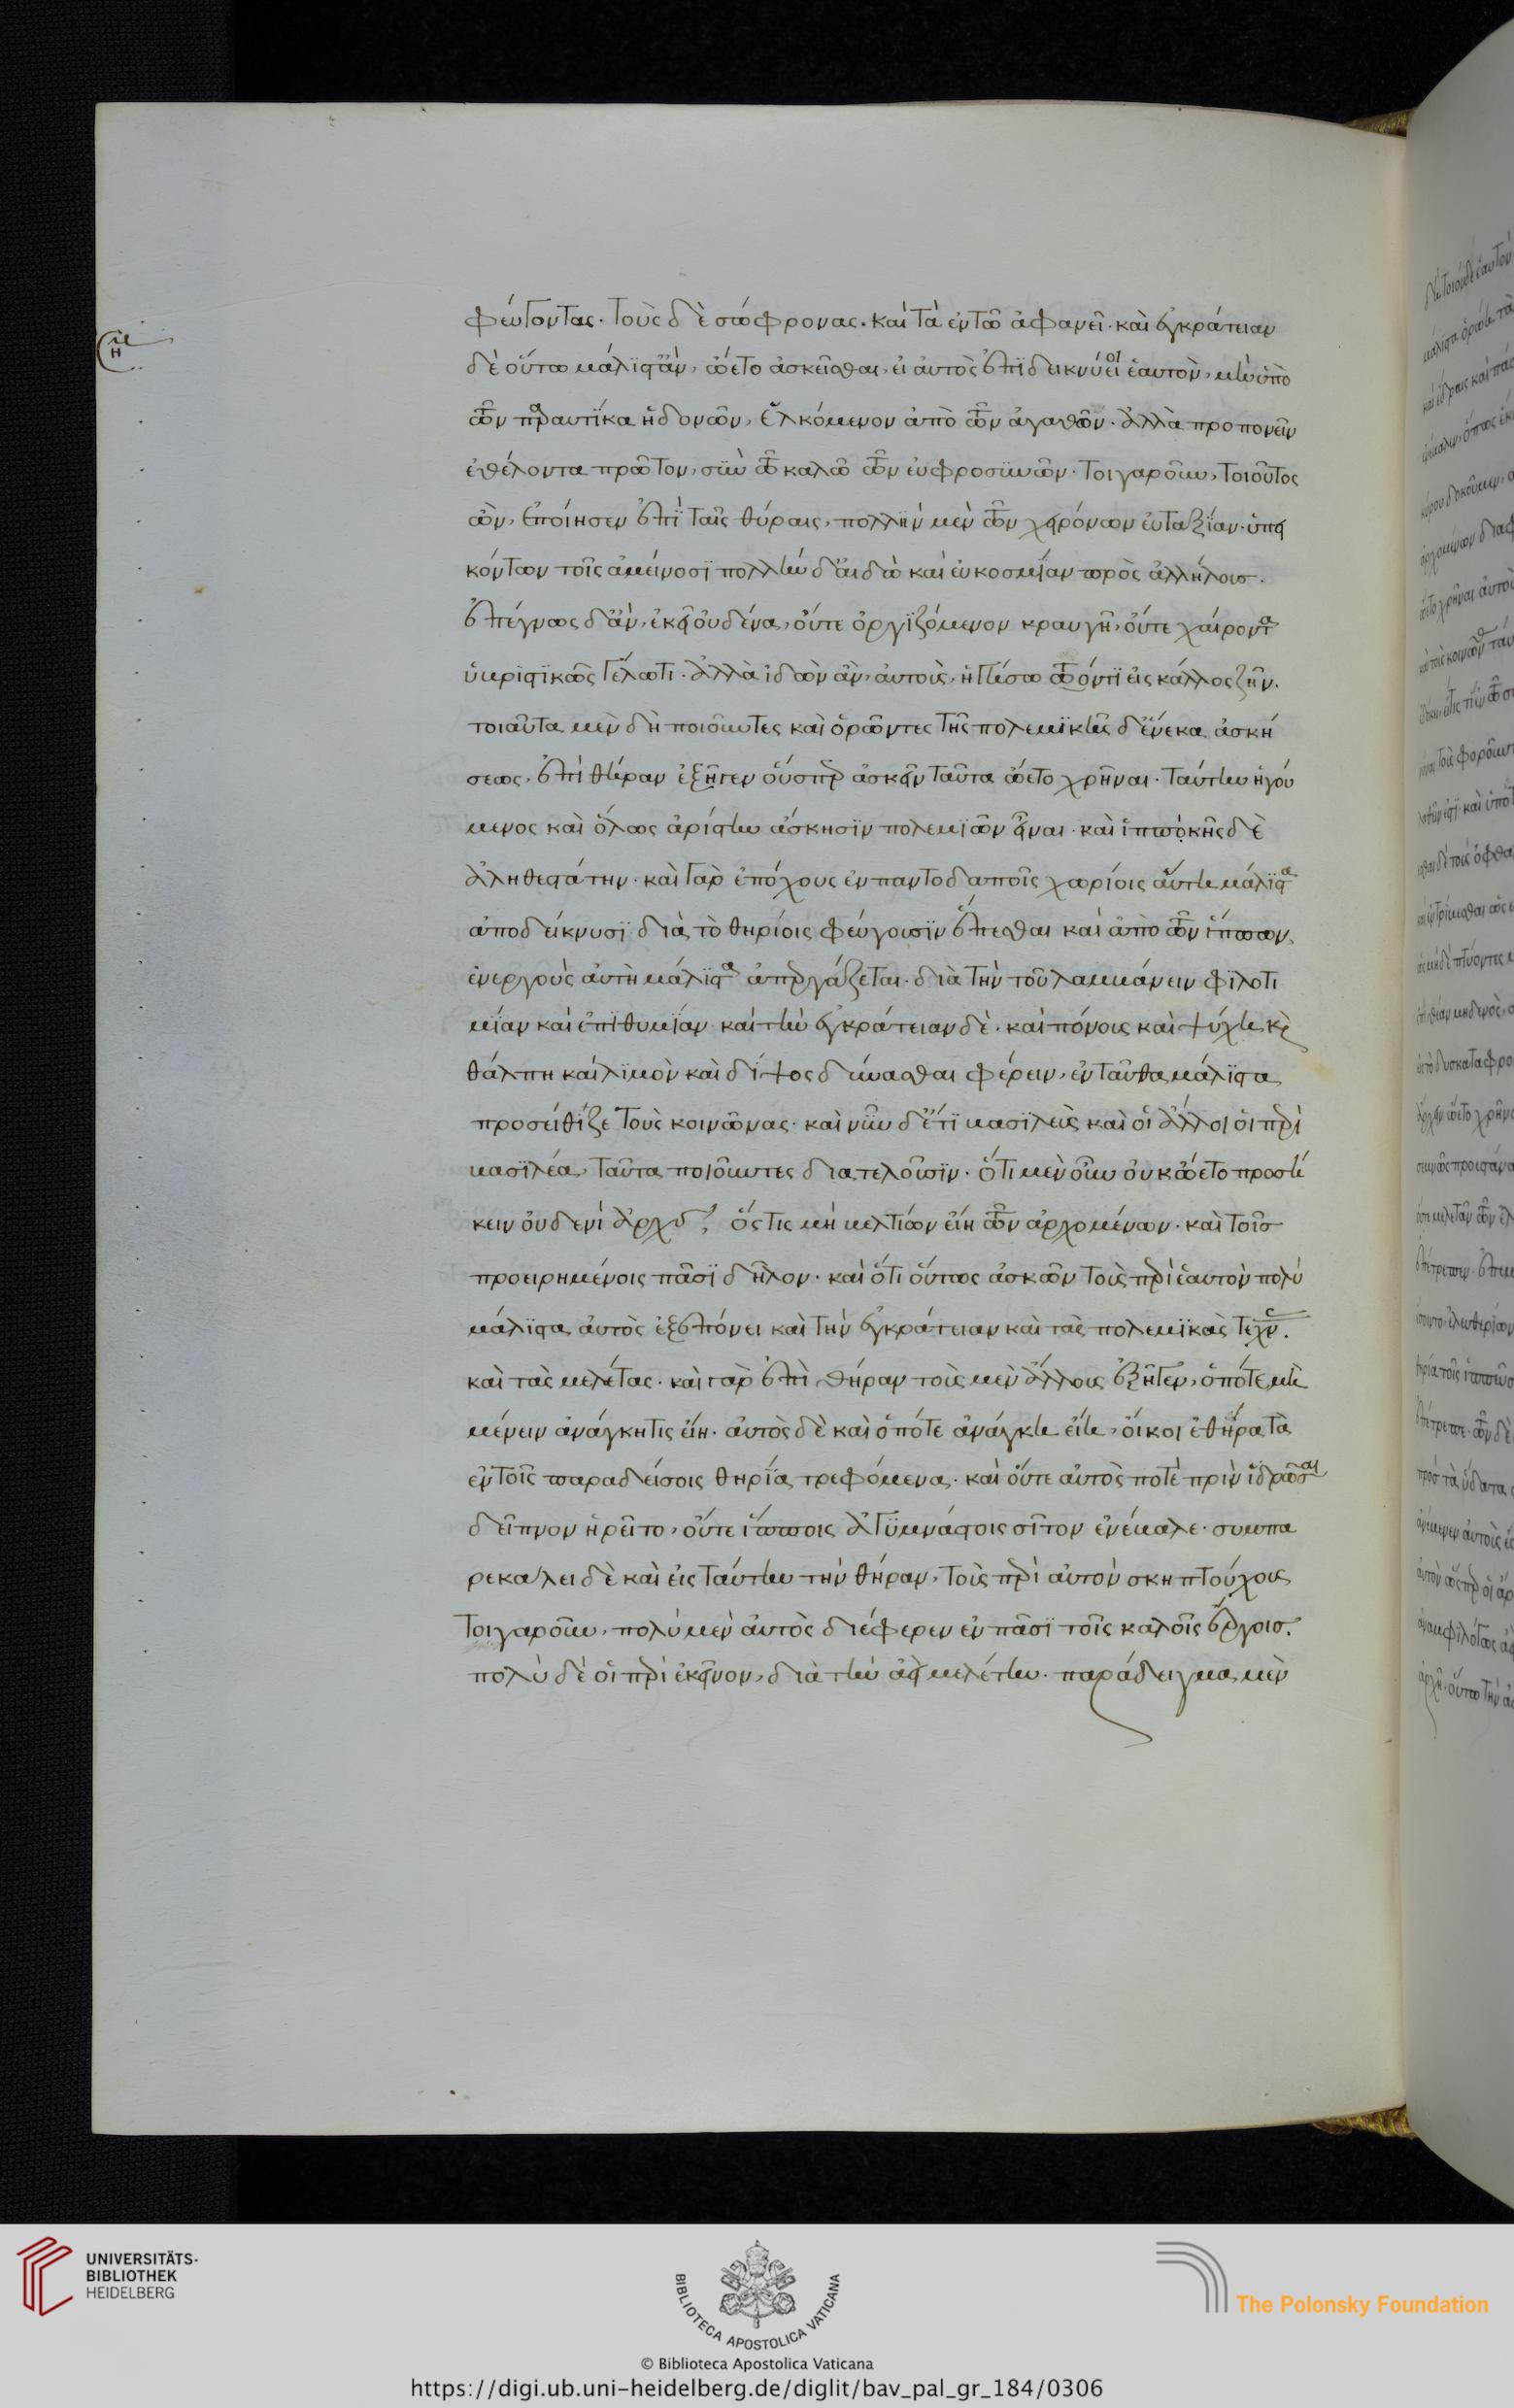 φεύγοντας· τοὺς δὲ σώφρονας· καὶ τὰ ἐν τῶ ἀφανεῖ· καὶ ἐγκράτειαν
δὲ οὕτω μάλιστ' ἂν, ᾤετο ἀσκεῖσθαι, εἰ αὐτὸς ἐπιδεικνύει οι ἑαυτὸν, μὴ ὑπὸ
τῶν παραυτίκα ἡδονῶν, ἑλκόμενον ἀπὸ τῶν ἀγαθῶν· ἀλλὰ προπονεῖν
ἐθέλοντα πρῶτον, σὺν τῶ καλῶ τῶν εὐφροσυνῶν· τοιγαροῦν, τοιοῦτος
ὢν, ἐποίησεν ἐπὶ ταῖς θύραις, πολλὴν μὲν τῶν χειρόνων εὐταξίαν· ὑπει
κόντων τοῖς ἀμείνοσι πολλὴν δ' αἰδῶ καὶ εὐκοσμίαν πρὸς ἀλλήλοισ·
ἐπέγνως δ' ἂν, ἐκεῖ οὐδένα, οὔτε ὀργιζόμενον κραυγῆ, οὔτε χαίροντα
ὑβριστικῶς γέλωτι· ἀλλὰ ἰδὼν ἂν, αὐτοὺς, ἡγήσω τῶ ὄντι εἰς κάλλος ζῆν.
τοιαῦτα μὲν δὴ ποιοῦντες καὶ ὁρῶντες τῆς πολεμικῆς δ' ἕνεκα ἀσκή
σεως, ἐπὶ θήραν ἐξῆγεν οὕσπερ ἀσκεῖν ταῦτα ᾤετο χρῆναι· ταύτην ἡγού
μενος καὶ ὅλως ἀρίστην ἄσκησιν πολεμιῶν εἶναι· καὶ ἱππϊκῆς δὲ
ἀληθεστάτην· καὶ γὰρ ἐπόχους ἐν παντοδαποῖς χωρίοις αὕτη μάλιστα
ἀποδείκνυσι διὰ τὸ θηρίοις φεύγουσιν ἕπεσθαι καὶ ἀπὸ τῶν ἵππων
ἐνεργοὺς αὐτὴ μάλιστα ἀπεργάζεται· διὰ τὴν τοῦ λαμβάνειν φιλοτι
μίαν καὶ ἐπιθυμίαν καὶ τὴν ἐγκράτειαν δὲ· καὶ πόνοις καὶ ψύχη κὶ
θάλπη καὶ λιμὸν καὶ δίψος δύνασθαι φέρειν, ἐνταῦθα μάλιστα
προσείθιζε τοὺς κοινῶνας· καὶ νῦν δ' ἔτι βασιλεὺς καὶ οἱ ἄλλοι οἱ περὶ
βασιλέα, ταῦτα ποιοῦντες διατελοῦσιν· ὅτι μὲν οὖν οὐκ ᾤετο προσή
κειν οὐδενὶ ἀρχῆς, ὅς τις μὴ βελτίων εἴη τῶν ἀρχομένων· καὶ τοῖσ
προειρημένοις πᾶσι δῆλον· καὶ ὅτι οὕτως ἀσκῶν τοὺς περὶ ἑαυτὸν πολὺ
μάλιστα αὐτὸς ἐξεπόνει καὶ τὴν ἐγκράτειαν καὶ τὰς πολεμικὰς τέχν.
καὶ τὰς μελέτας· καὶ γὰρ ἐπὶ θήραν τοὺς μὲν ἄλλους ἐξῆγεν, ὁπότε μὴ
μένειν ἀνάγκη τις εἴη· αὐτὸς δὲ καὶ ὁπότε ἀνάγκη εἴη, οἴκοι ἐθήρα τὰ
ἐν τοῖς παραδείσοις θηρία τρεφόμενα· καὶ οὔτε αὐτὸς ποτὲ πρὶν ἱδρῶσαι
δεῖπνον ἡρεῖτο, οὔτε ἵπποις ἀγυμνάστοις σῖτον ἐνέβαλε· συμπα
ρεκάλει δὲ καὶ εἰς ταύτην τὴν θήραν, τοὺς περὶ αὐτὸν σκηπτούχους
τοιγαροῦν, πολὺ μὲν αὐτὸς διέφερεν ἐν πᾶσι τοῖς καλοῖς ἔργοισ.
πολὺ δὲ οἱ περὶ ἐκεῖνον, διὰ τὴν ἀεὶ μελέτην· παράδειγμα μὲν
UNIVERSITÄTS-
BIBLIOTHEK
HEIDELBERG
BIBLIOTECA APOSTOLICA VATICANA
The Polonsky Foundation
© Biblioteca Apostolica Vaticana
https://digi.ub.uni-heidelberg.de/diglit/bav_pal_gr_184/0306